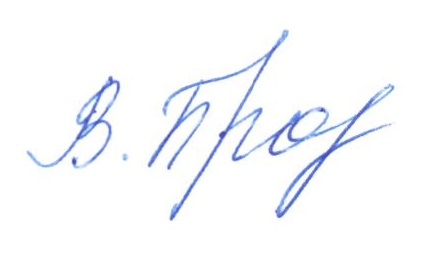 В. Проз